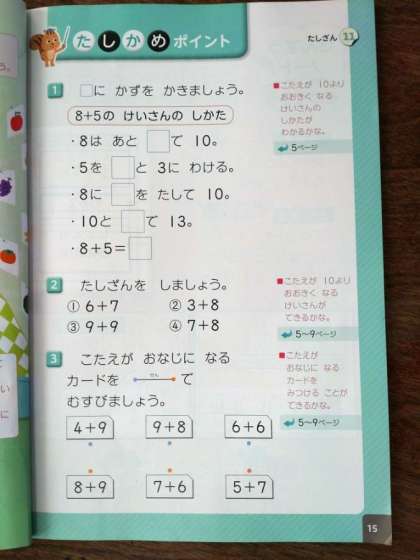 たしかめポイント
たしざん 11
1 □に かずを かきましょう。
8+5の けいさんの しかた
・8は あと □で 10。
・5を □と 3に わける。
・8に □を たして 10。
・10と □で 13。
・8+5=□
■こたえが 10より
おおきく なる
けいさんの
しかたが
わかるかな。
5ページ
2 たしざんを しましょう。
① 6+7 ② 3+8
③ 9+9 ④ 7+8
■こたえが 10より
おおきく なる
けいさんが
できるかな。
5〜9ページ
3 こたえが おなじに なる
カードを せんで
むすびましょう。
4+9 9+8 6+6
8+9 7+6 5+7
■こたえが
おなじに なる
カードを
みつける ことが
できるかな。
5〜9ページ
15